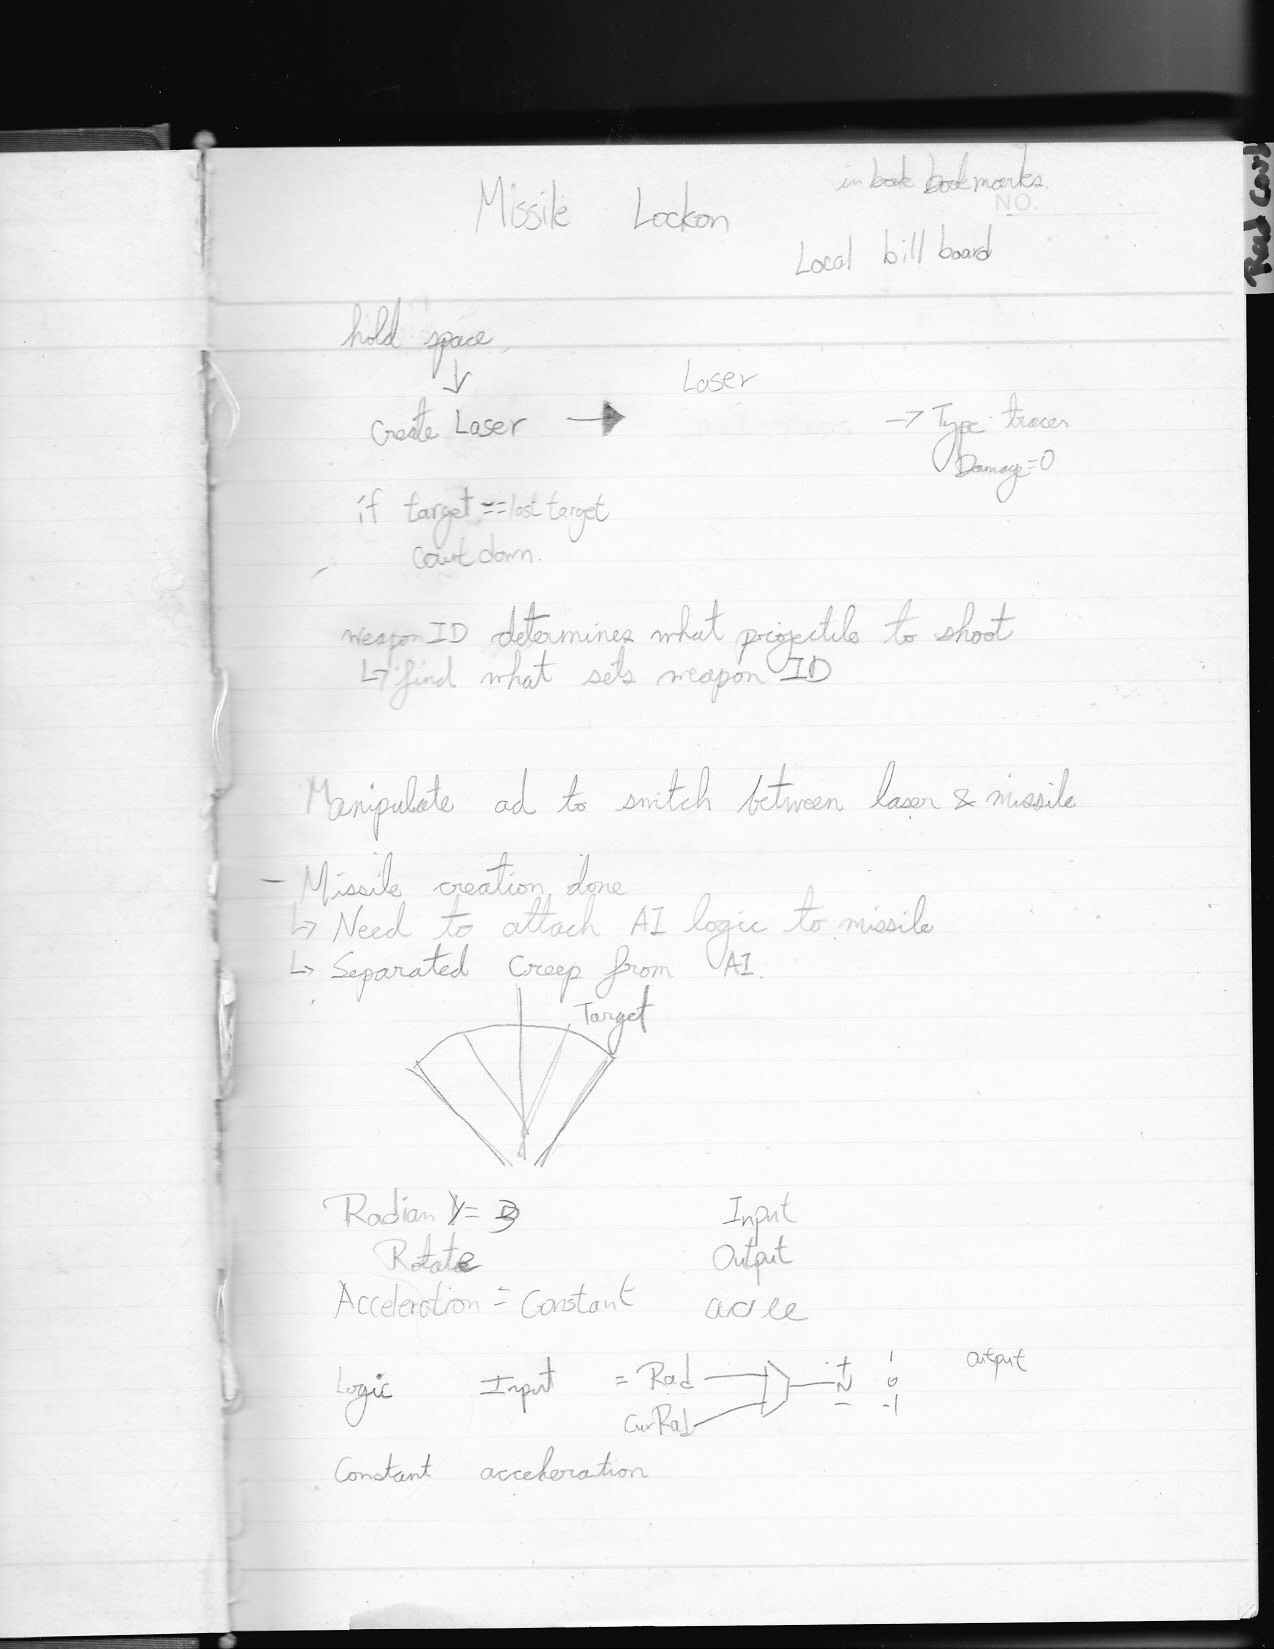 in book bookmarks.
NO.
Missile Lockon
Local bill board
Read
hold space
Laser
Create Laser → → Type: tracer
Damage=0
if target == last target
Count down.
weapon ID determines what projectile to shoot
↳ find what sets weapon ID
Manipulate ad to switch between laser & missile
- Missile creation done
↳ Need to attach AI logic to missile
↳ Separated Creep from AI.
Target
Radian Input
Rotate Output
Acceleration = Constant
Logic Input = Rad + 1 output
N 0
CurRad - -1
Constant acceleration